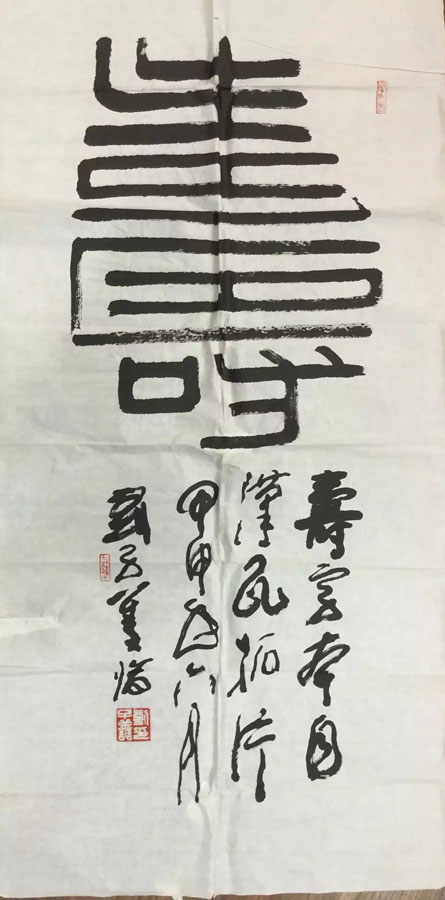 壽
壽字本自
漢瓦拓片
甲申年六月
子善